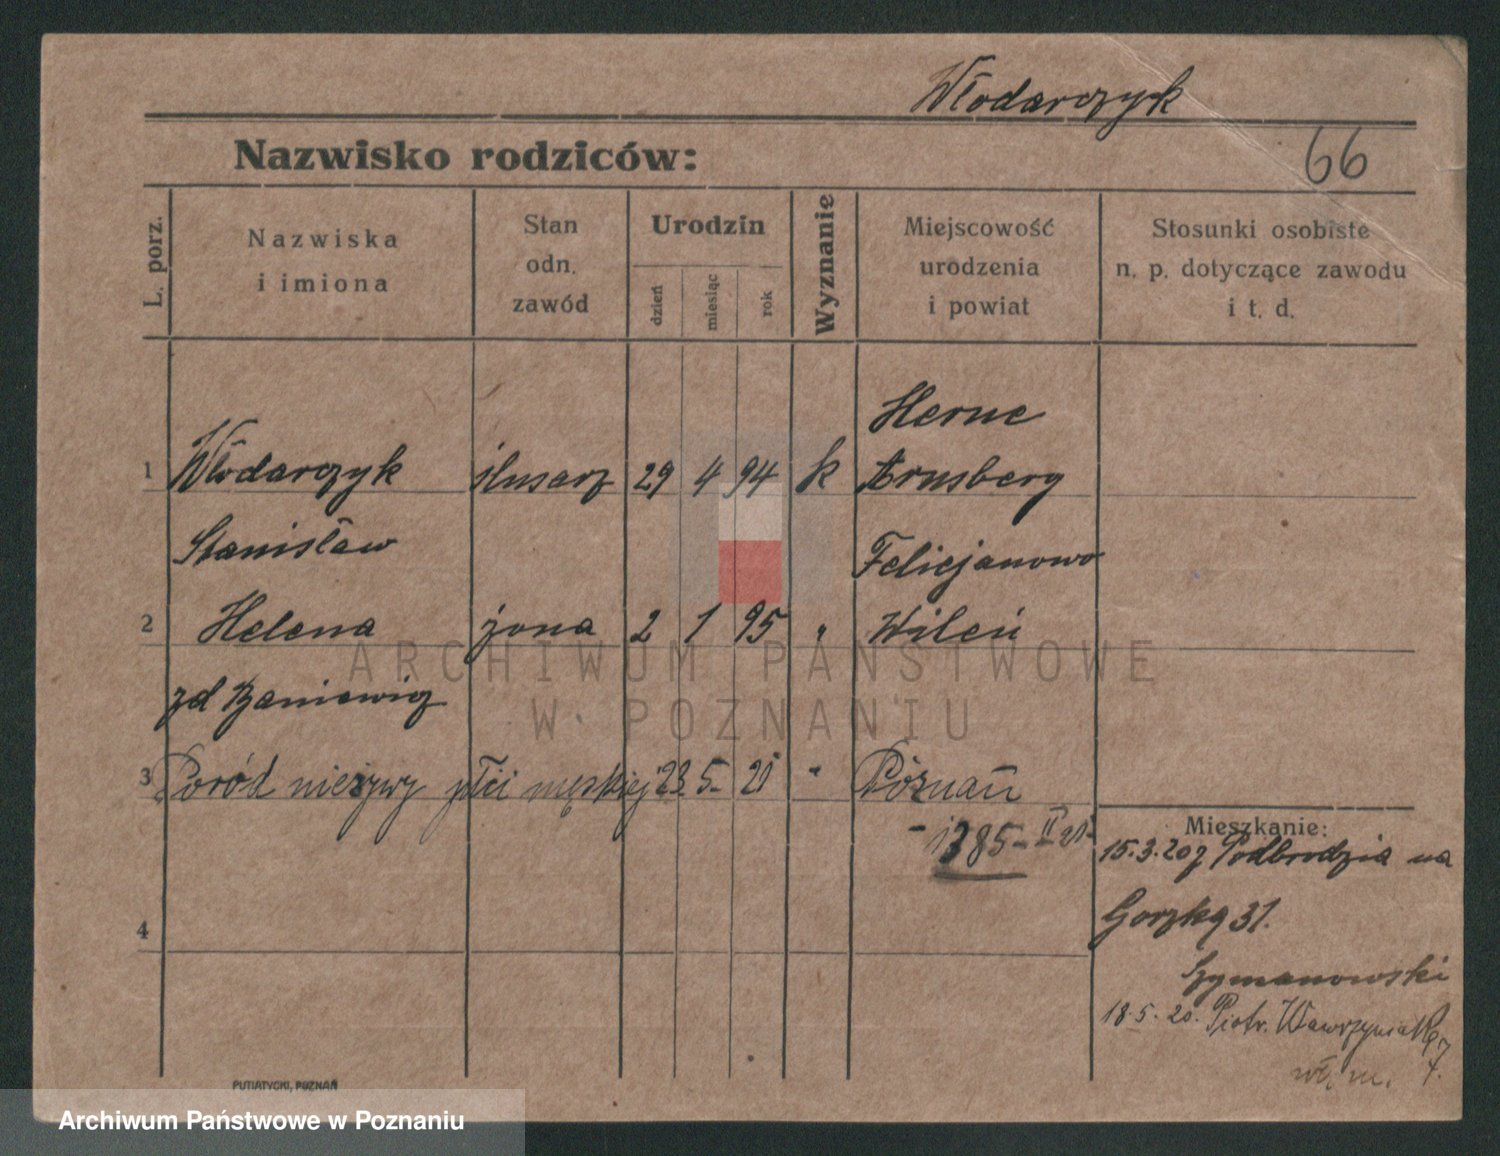 Włodarczyk
66
Nazwisko rodziców:
L. porz.
Nazwiska
i imiona
Stan
odn.
zawód
Urodzin
dzień
miesiąc
rok
Wyznanie
Miejscowość
urodzenia
i powiat
Stosunki osobiste
n. p. dotyczące zawodu
i t. d.
Herne
1 Włodarczyk ślusarz 29 4 94 k Arnsberg
Stanisław Felicjanowo
2 Helena żona 2 1 95 " Wileń
zd Baniewicz
3 Poród nieżywy płci męskiej 23 5 21 " Poznań
1385 II 21
Mieszkanie:
15.3.20 z Podbrodzia na
Gorzką 31.
Szymanowski
4
18.5.20. Piotr. Wawrzyniaka 7
wł. m. 7.
PUTIATYCKI, POZNAŃ
ARCHIWUM PAŃSTWOWE
W POZNANIU
Archiwum Państwowe w Poznaniu